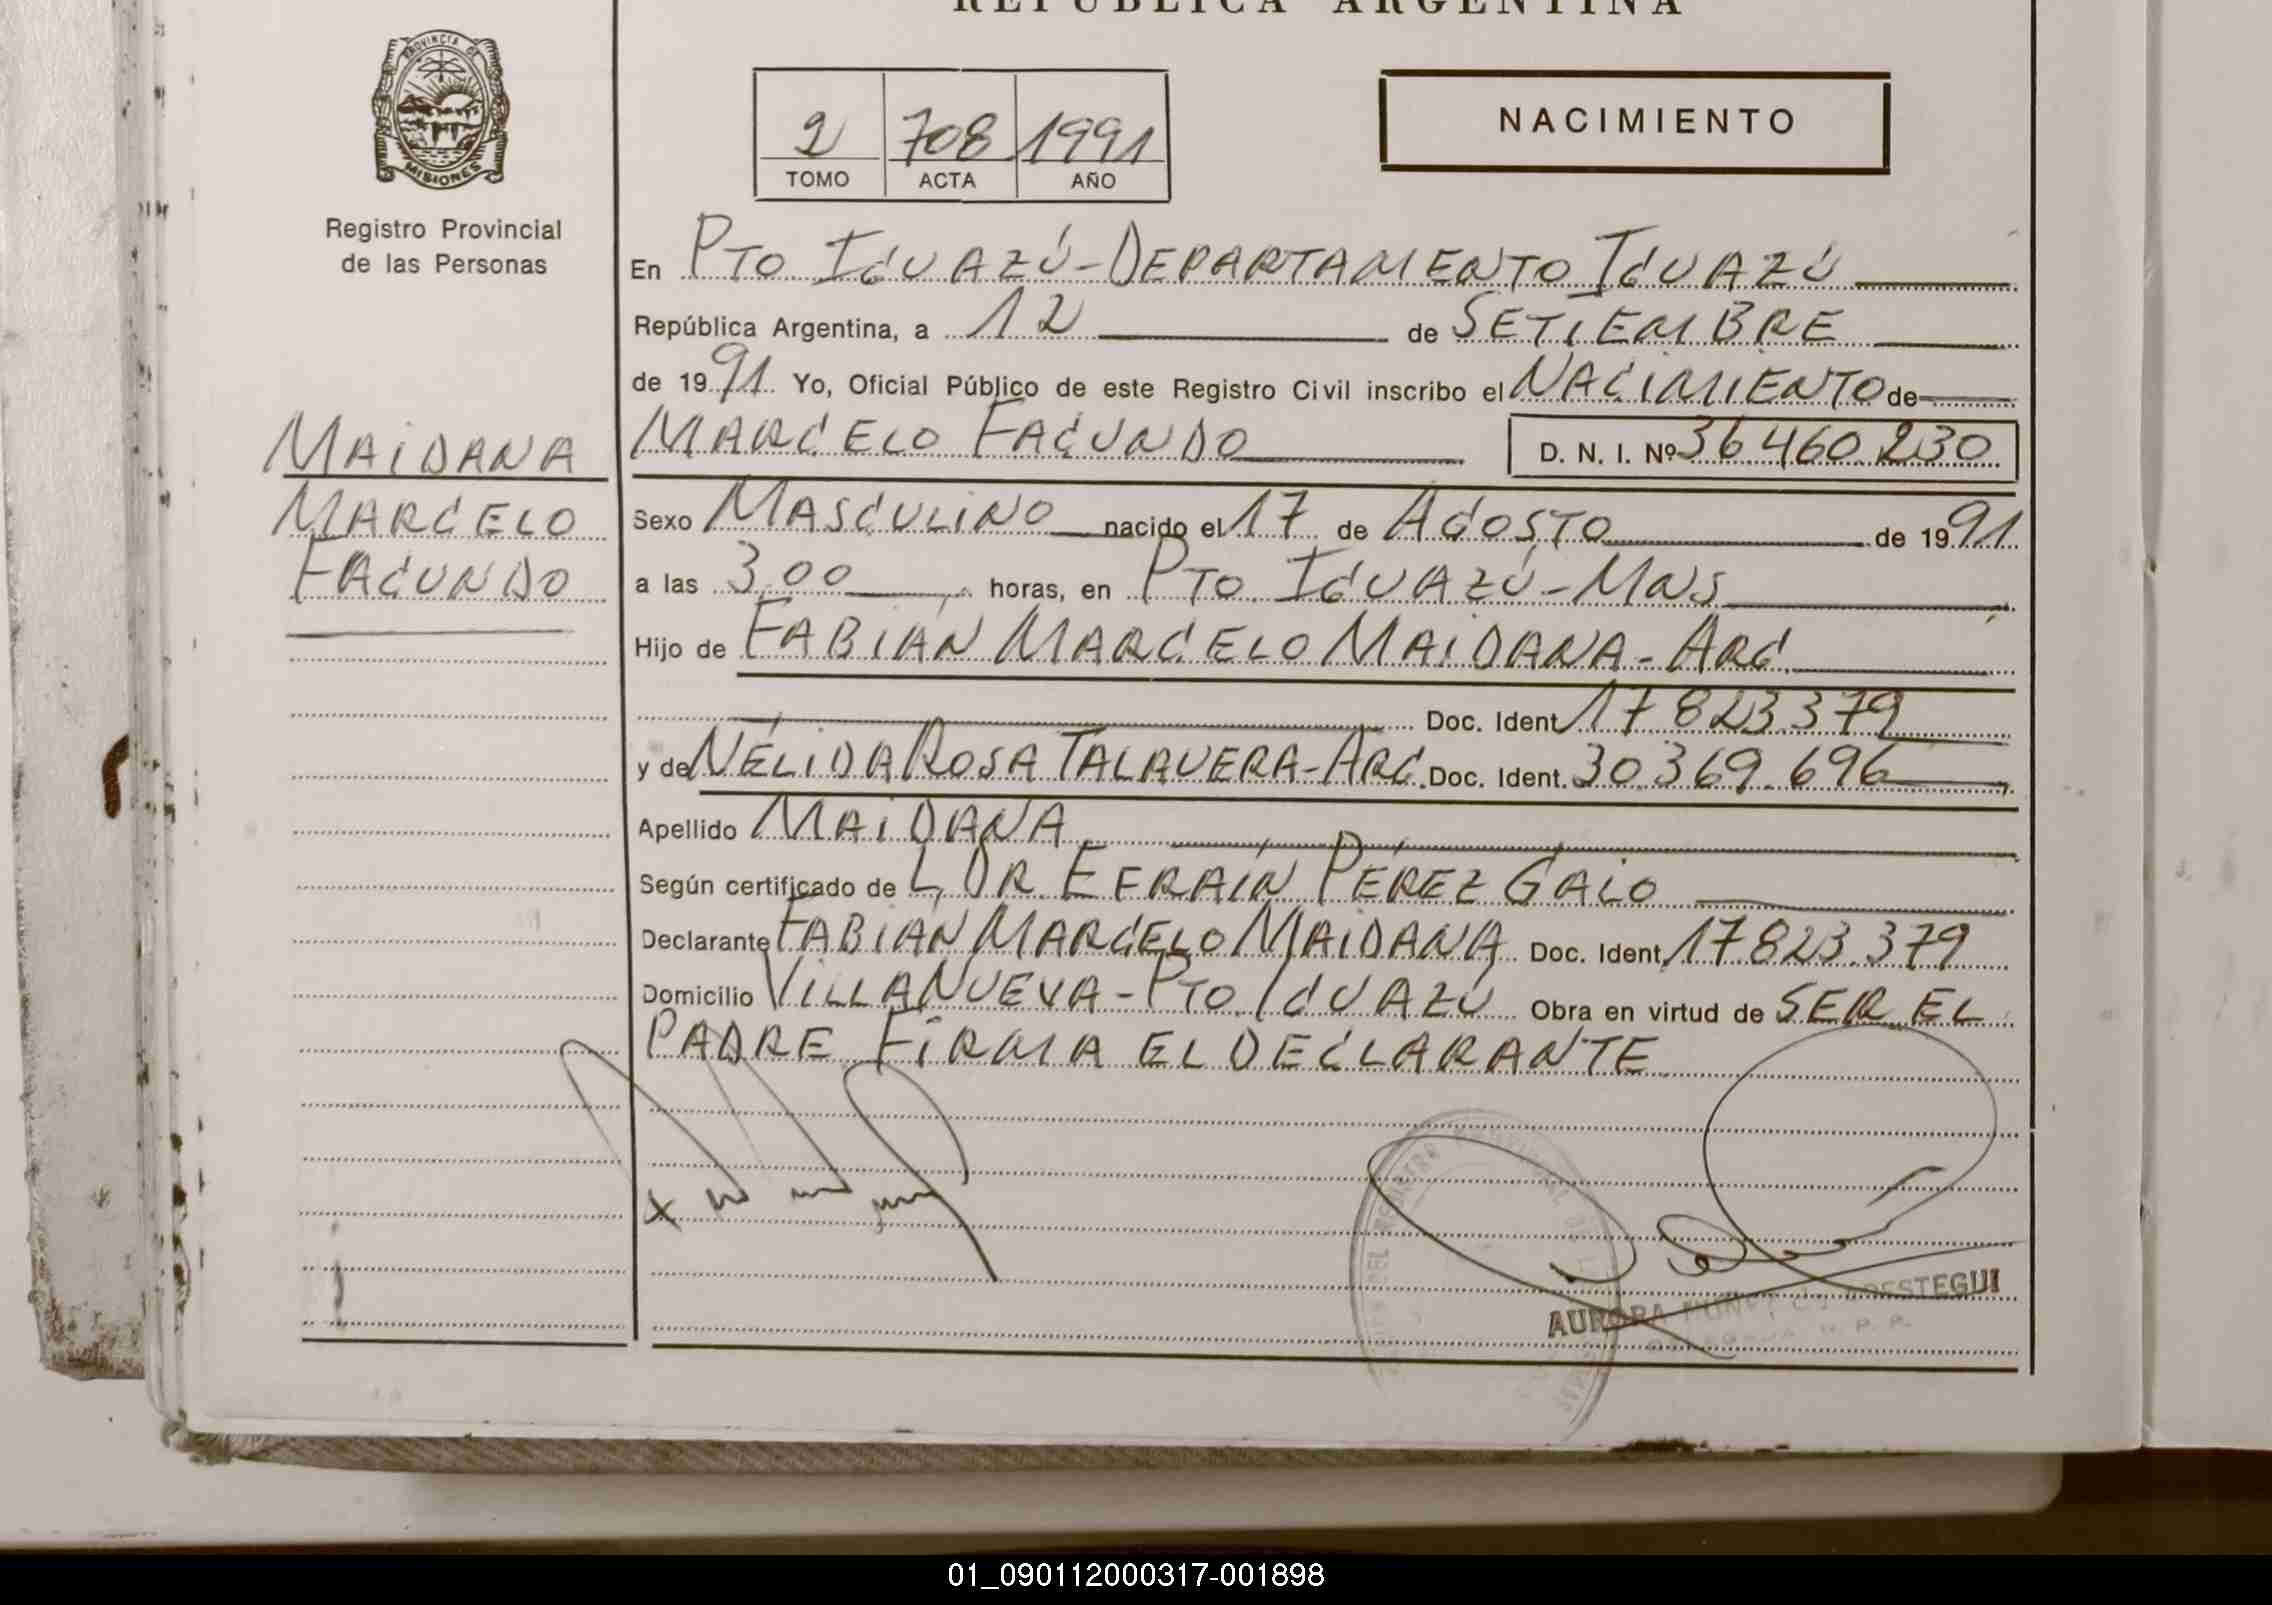 REPUBLICA ARGENTINA
PROVINCIA DE
MISIONES
Registro Provincial
de las Personas
2 708 1991
TOMO ACTA AÑO
NACIMIENTO
En PTO IGUAZÚ-DEPARTAMENTO IGUAZÚ
República Argentina, a 12 de SETIEMBRE
de 1991 Yo, Oficial Público de este Registro Civil inscribo el NACIMIENTO de
MAIDANA
MARCELO
FACUNDO
MARCELO FACUNDO D. N. I. Nº 36460.230
Sexo MASCULINO nacido el 17 de AGOSTO de 1991
a las 3,00 horas, en PTO IGUAZÚ-MNS
Hijo de FABIÁN MARCELO MAIDANA-ARG.
Doc. Ident 17.823.379
y de NÉLIDA ROSA TALAVERA-ARG. Doc. Ident. 30.369.696
Apellido MAIDANA
Según certificado de L, DR EFRAÍN PÉREZ GAIO
Declarante FABIÁN MARCELO MAIDANA Doc. Ident. 17.823.379
Domicilio VILLA NUEVA-PTO. IGUAZÚ Obra en virtud de SER EL
PADRE FIRMA EL DECLARANTE
x
AURORA
01_090112000317-001898